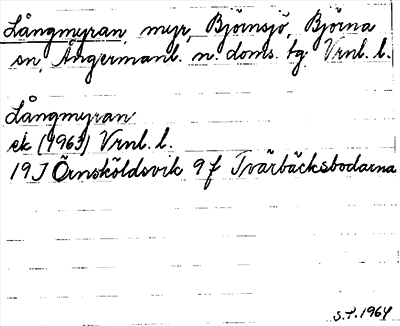 Långmyran, myr, Björnsjö, Björna
sn, Ångermanl. n. doms. tg. Vrnl. l.
Långmyran
ek (1963) Vrnl. l.
19J Örnsköldsvik 9f Tvärbäcksbodarna
S.T. 1964